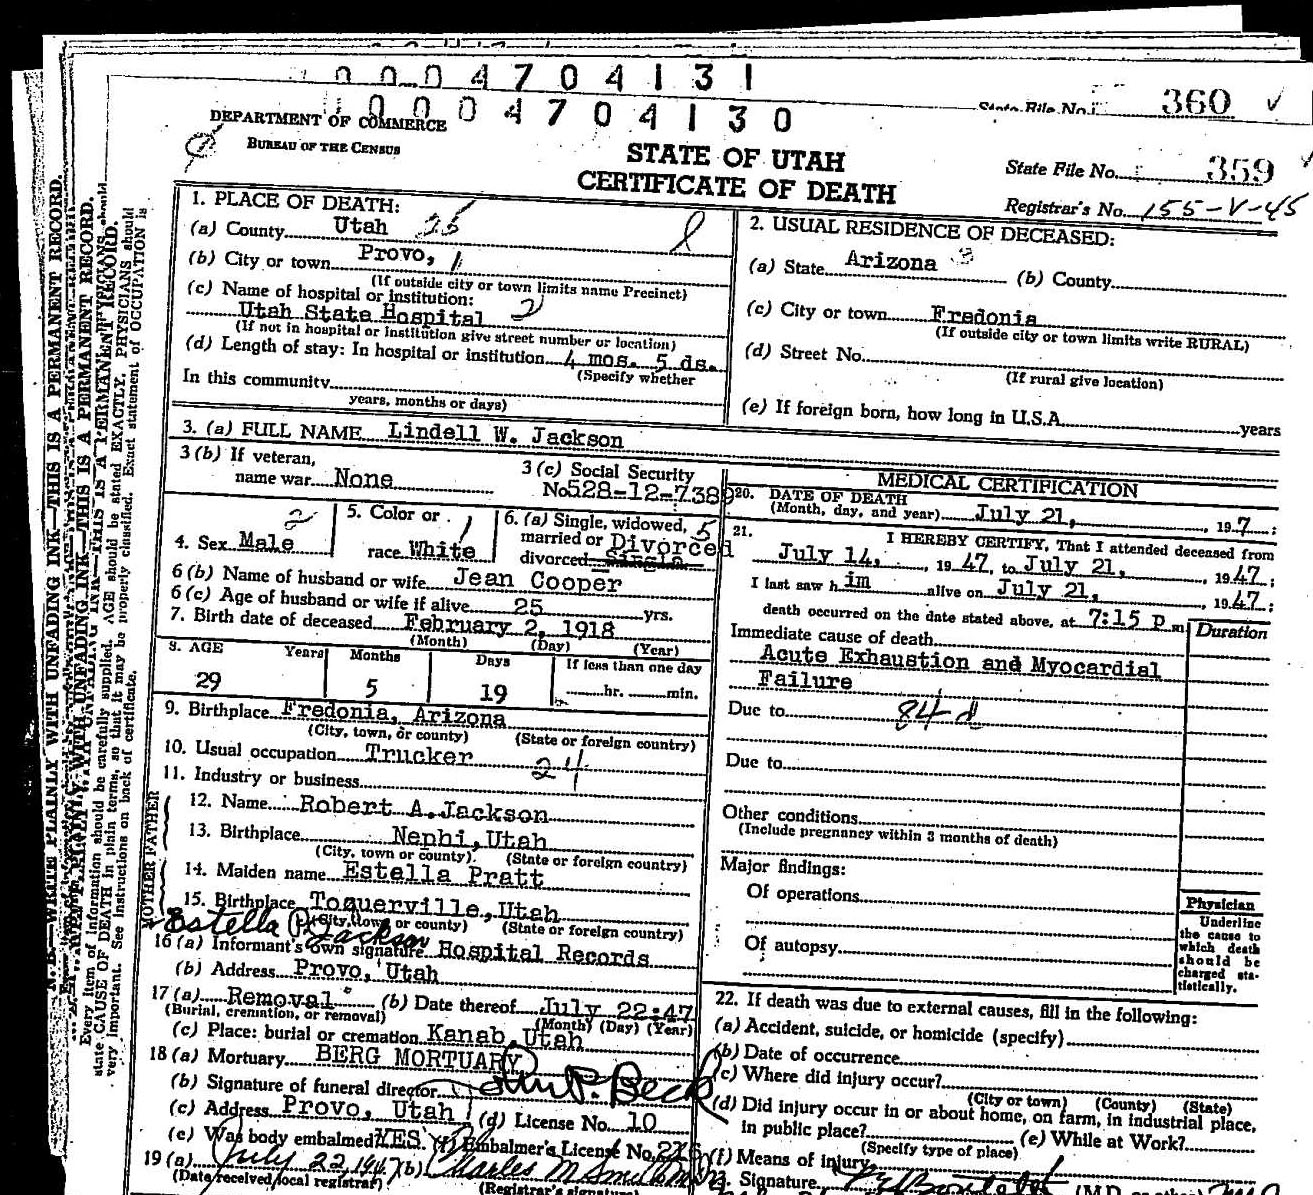 0004704131
State File No. 360
0004704130
DEPARTMENT OF COMMERCE
BUREAU OF THE CENSUS
STATE OF UTAH
CERTIFICATE OF DEATH
State File No. 359
Registrar's No. 155-V-45
1. PLACE OF DEATH:
(a) County Utah 25
(b) City or town Provo, 1
(If outside city or town limits name Precinct)
(c) Name of hospital or institution: 2
Utah State Hospital
(If not in hospital or institution give street number or location)
(d) Length of stay: In hospital or institution 4 mos. 5 ds.
(Specify whether
In this community
years, months or days)
2. USUAL RESIDENCE OF DECEASED:
(a) State Arizona 3 (b) County
(c) City or town Fredonia
(If outside city or town limits write RURAL)
(d) Street No.
(If rural give location)
(e) If foreign born, how long in U.S.A. years
3. (a) FULL NAME Lindell W. Jackson
3 (b) If veteran,
name war None
3 (c) Social Security
No. 528-12-7389
4. Sex Male 2
5. Color or
race White 1
6. (a) Single, widowed, 5
married or Divorced
divorced Single
6 (b) Name of husband or wife Jean Cooper
6 (c) Age of husband or wife if alive 25 yrs.
7. Birth date of deceased February 2, 1918
(Month) (Day) (Year)
8. AGE Years Months Days If less than one day
29 5 19 hr. min.
9. Birthplace Fredonia, Arizona
(City, town, or county) (State or foreign country)
10. Usual occupation Trucker 24
11. Industry or business
FATHER
12. Name Robert A. Jackson
13. Birthplace Nephi, Utah
(City, town or county) (State or foreign country)
MOTHER
14. Maiden name Estella Pratt
15. Birthplace Toquerville, Utah
(City, town or county) (State or foreign country)
Estella P. Jackson
16 (a) Informant's own signature Hospital Records
(b) Address Provo, Utah
17 (a) Removal (b) Date thereof July 22-47
(Burial, cremation, or removal) (Month) (Day) (Year)
(c) Place: burial or cremation Kanab, Utah
18 (a) Mortuary BERG MORTUARY
(b) Signature of funeral director
(c) Address Provo, Utah (d) License No. 10
(e) Was body embalmed? YES (f) Embalmer's License No.
19 (a) July 22, 1947 (b) Charles M Smith
(Date received local registrar) (Registrar's signature)
MEDICAL CERTIFICATION
20. DATE OF DEATH
(Month, day, and year) July 21, 19 7 ;
21. I HEREBY CERTIFY, That I attended deceased from
July 14, 19 47, to July 21, 19 47 ;
I last saw h im alive on July 21, 19 47 ;
death occurred on the date stated above, at 7:15 p m
Duration
Immediate cause of death
Acute Exhaustion and Myocardial
Failure
Due to 84 d
Due to
Other conditions
(Include pregnancy within 3 months of death)
Major findings:
Of operations
Of autopsy
Physician
Underline
the cause to
which death
should be
charged sta-
tistically.
22. If death was due to external causes, fill in the following:
(a) Accident, suicide, or homicide (specify)
(b) Date of occurrence
(c) Where did injury occur?
(City or town) (County) (State)
(d) Did injury occur in or about home, on farm, in industrial place,
in public place? (e) While at Work?
(Specify type of place)
(f) Means of injury
Signature (M.D. or other)
N. B.—WRITE PLAINLY WITH UNFADING INK—THIS IS A PERMANENT RECORD.
Every item of information should be carefully supplied. AGE should be stated EXACTLY. PHYSICIANS should
state CAUSE OF DEATH in plain terms, so that it may be properly classified. Exact statement of OCCUPATION is
very important. See instructions on back of certificate.